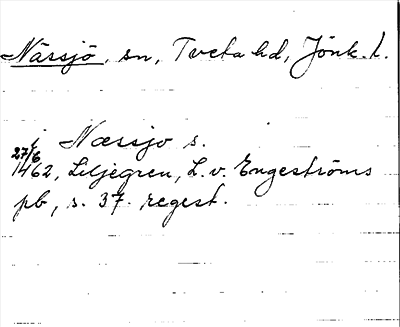 Nässjö, sn, Tveta hd, Jönk. l.
i Næssjo s.
27/6
1462, Liljegren, L. v. Engeströms
pb, s. 37. regest.